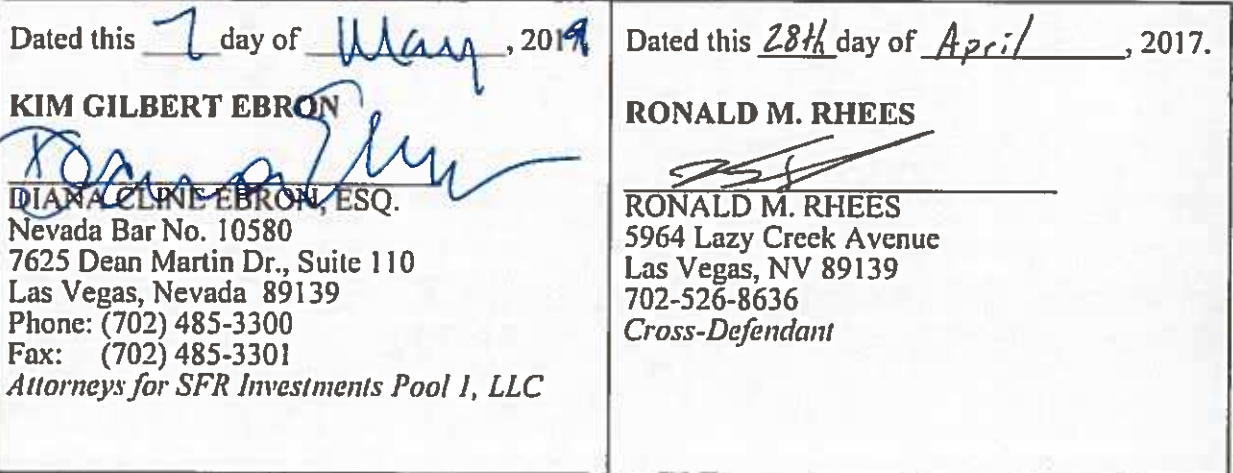 Dated this 7 day of May, 2019
KIM GILBERT EBRON
DIANA CLINE EBRON, ESQ.
Nevada Bar No. 10580
7625 Dean Martin Dr., Suite 110
Las Vegas, Nevada 89139
Phone: (702) 485-3300
Fax: (702) 485-3301
Attorneys for SFR Investments Pool 1, LLC
Dated this 28th day of April, 2017.
RONALD M. RHEES
RONALD M. RHEES
5964 Lazy Creek Avenue
Las Vegas, NV 89139
702-526-8636
Cross-Defendant